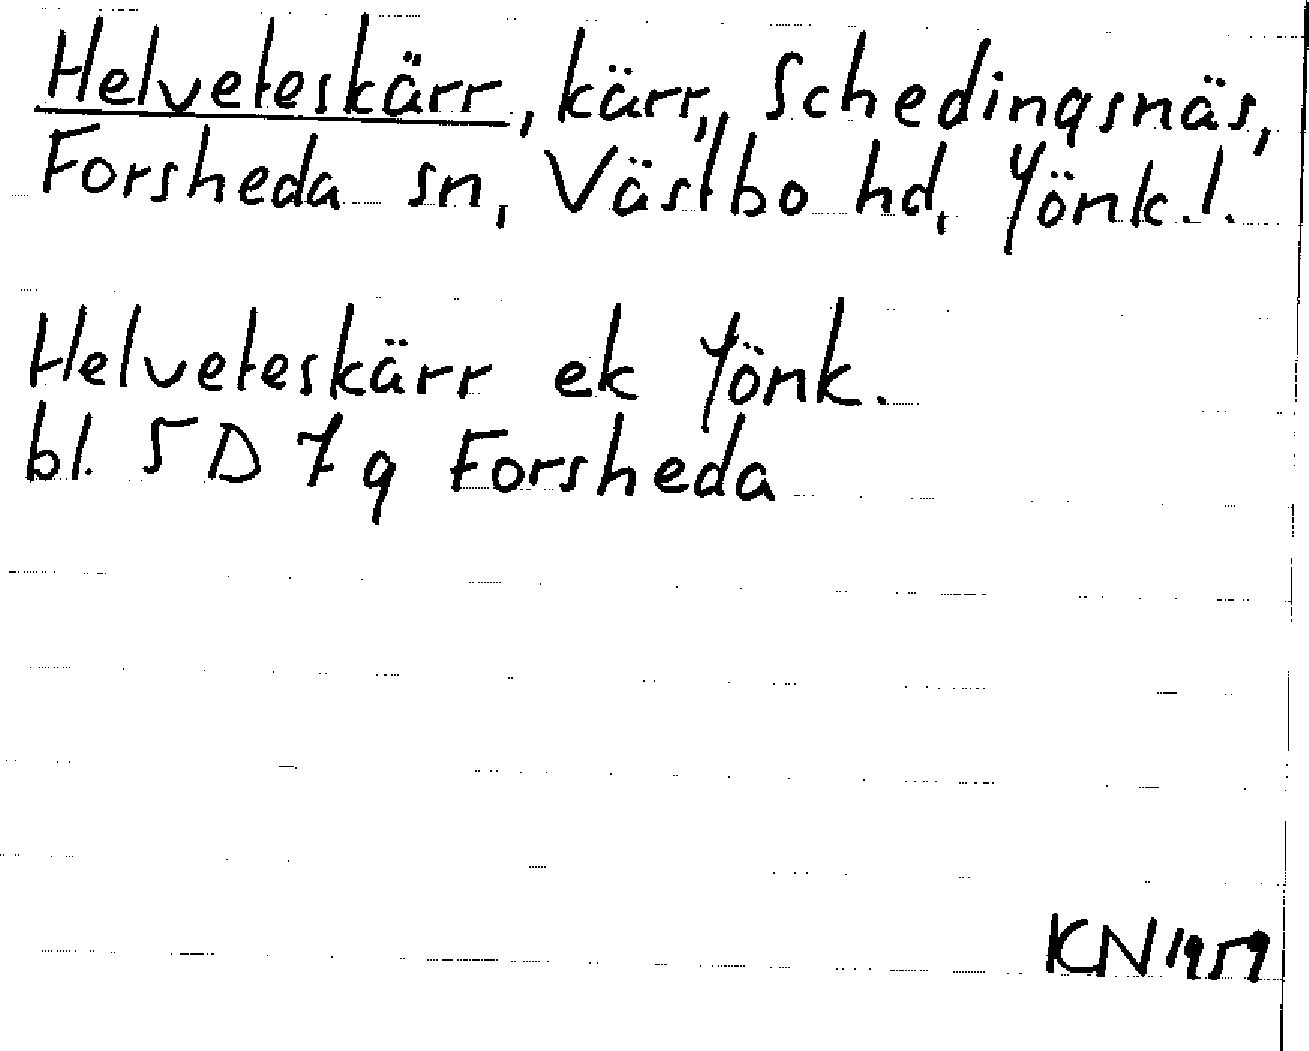 Helveteskärr, kärr, Schedingsnäs,
Forsheda sn, Västbo hd, Jönk.l.
Helveteskärr ek Jönk.
bl. 5 D 7 g Forsheda
KN 1959